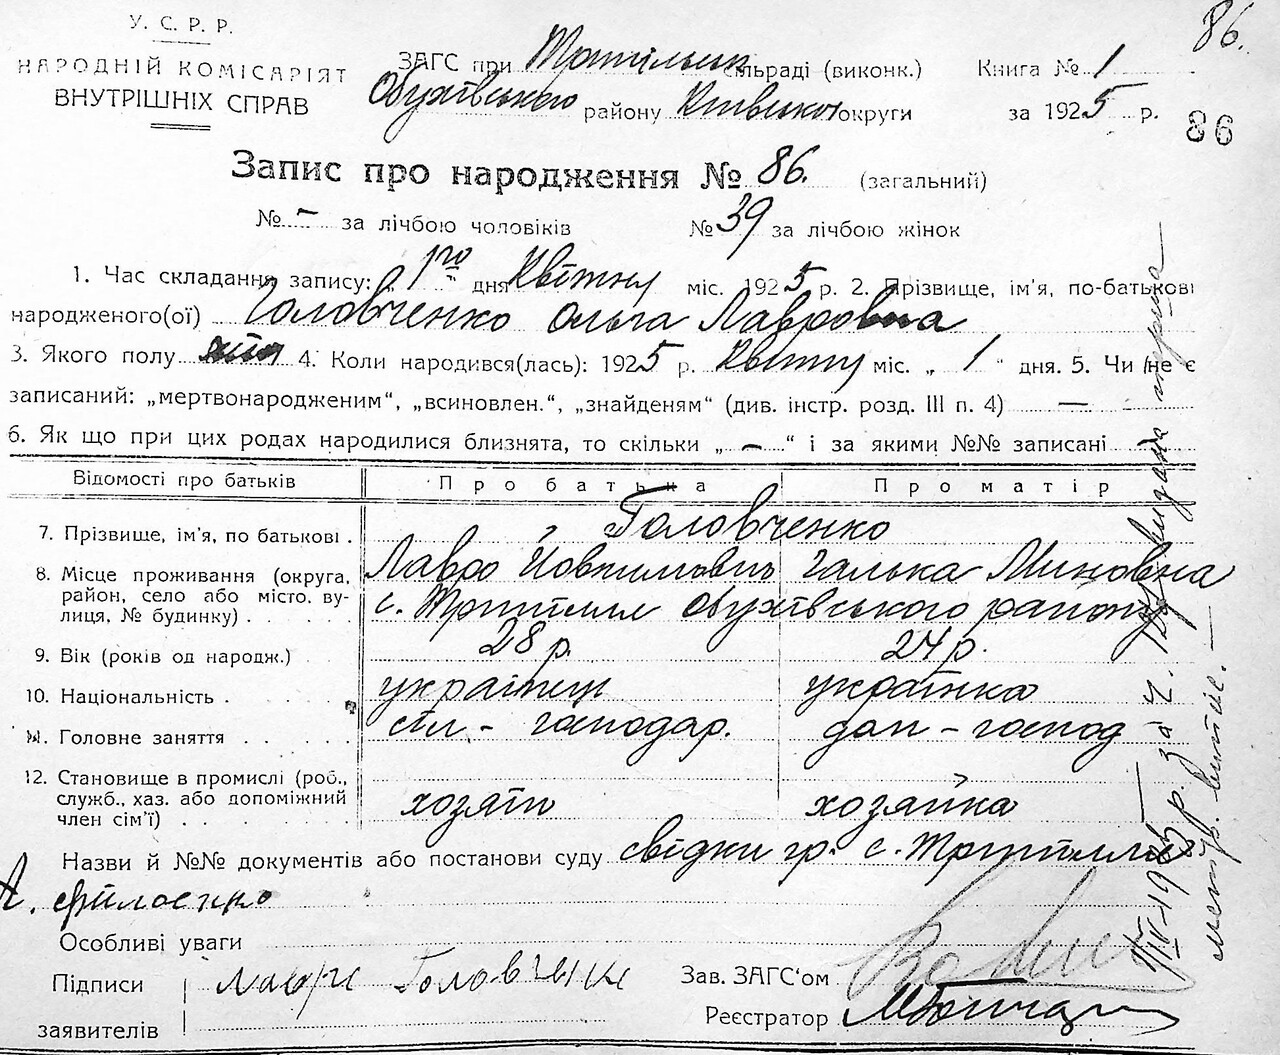 У. С. Р. Р.
НАРОДНІЙ КОМІСАРІЯТ
ВНУТРІШНІХ СПРАВ
ЗАГС при Трипільськ сільраді (виконк.) Книга № 1
Обухівського району Київської округи за 1925 р.
86.
86
Запис про народження № 86. (загальний)
№ – за лічбою чоловіків № 39 за лічбою жінок
1. Час складання запису: 1го дня Квітня міс. 1925 р. 2. Прізвище, ім'я, по-батькові
народженого(ої) Головченко Ольга Лавровна
3. Якого полу жін 4. Коли народився(лась): 1925 р. Квітня міс. „ 1 “ дня. 5. Чи не є
записаний: „мертвонародженим“, „всиновлен.“, „знайденям“ (див. інстр. розд. III п. 4) —
6. Як що при цих родах народилися близнята, то скільки „ – “ і за якими №№ записані
Відомості про батьків Про батька Про матір
7. Прізвище, ім'я, по батькові . Головченко
Лавро Йовхимович Галька Миновна
8. Місце проживання (округа, район, село або місто, ву-
лиця, № будинку) с. Трипілля Обухівського району
9. Вік (років од народж.) 28 р. 24 р.
10. Національність . українець українка
11. Головне заняття сіл - господар. дом - господ
12. Становище в промислі (роб.,
служб., хаз. або допоміжний
член сім'ї) хозяїн хозяйка
Назви й №№ документів або постанови суду свідки гр. с. Трипілля
Особливі уваги
Підписи Лавро Головченко
заявителів
Зав. ЗАГС'ом
Реєстратор